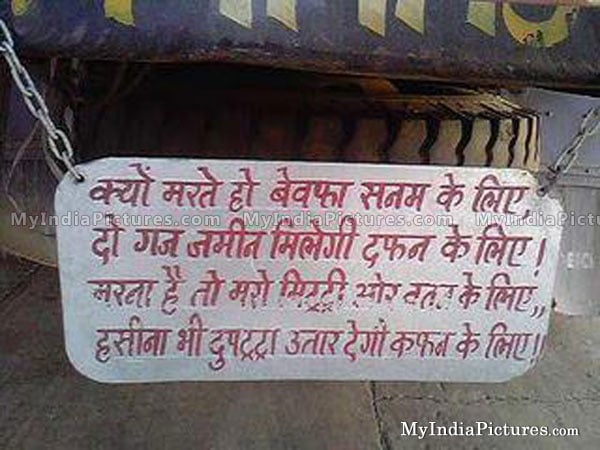 क्यों मरते हो बेवफा सनम के लिए,
MyIndiaPictures.com MyIndiaPictures.com MyIndiaPictures.com
दो गज जमीन मिलेगी दफन के लिए!
मरना है तो मरो मिट्टी और वतन के लिए,,
हसीना भी दुपट्टा उतार देगी कफन के लिए!!
MyIndiaPictures.com